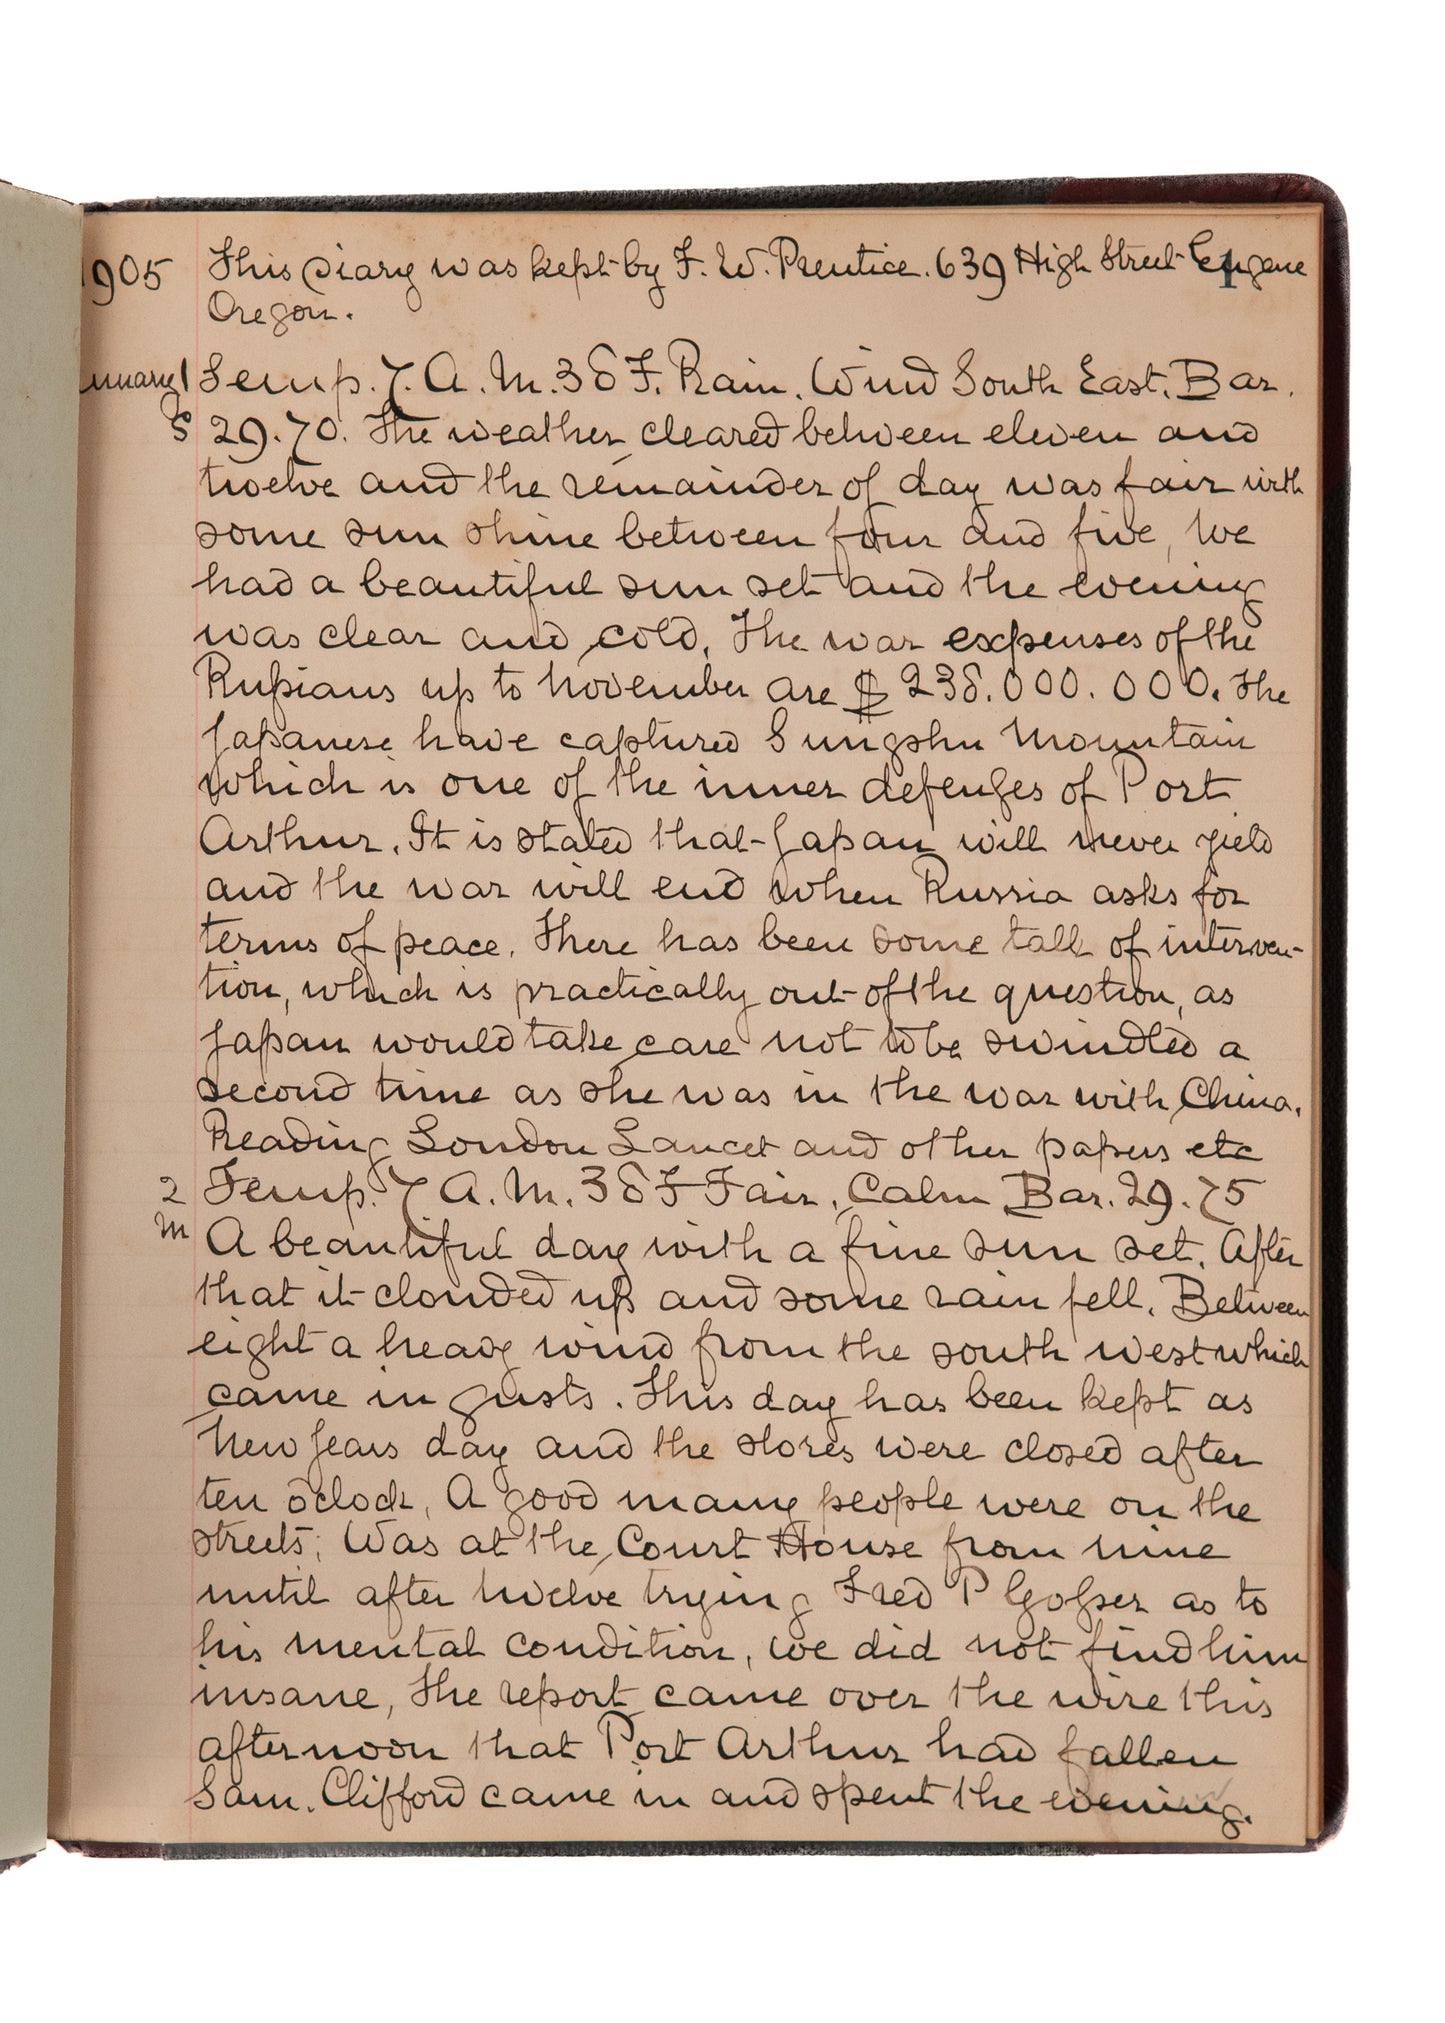 1905 This Diary was kept by F. W. Prentice. 639 High Street Eugene 1
Oregon.
January 1 Temp. 7. A. M. 38 F. Rain. Wind South East. Bar.
S 29.70. The weather cleared between eleven and
twelve and the remainder of day was fair with
some sun shine between four and five, We
had a beautiful sun set and the evening
was clear and cold. The war expenses of the
Russians up to November are $ 238.000.000. The
Japanese have captured Sungshu Mountain
which is one of the inner defenses of Port
Arthur. It is stated that Japan will never yield
and the war will end when Russia asks for
terms of peace. There has been some talk of interven-
tion, which is practically out of the question, as
Japan would take care not to be swindled a
second time as she was in the war with China.
Reading London Lancet and other papers etc
2 Temp. 7 A. M. 38 F Fair. Calm Bar. 29.75
M A beautiful day with a fine sun set. After
that it clouded up and some rain fell. Between
eight a heavy wind from the south west which
came in gusts. This day has been kept as
New Years day and the stores were closed after
ten oclock. A good many people were on the
streets; Was at the Court House from nine
until after twelve trying Fred P Gosser as to
his mental condition, we did not find him
insane, The report came over the wire this
afternoon that Port Arthur had fallen
Sam. Clifford came in and spent the evening.